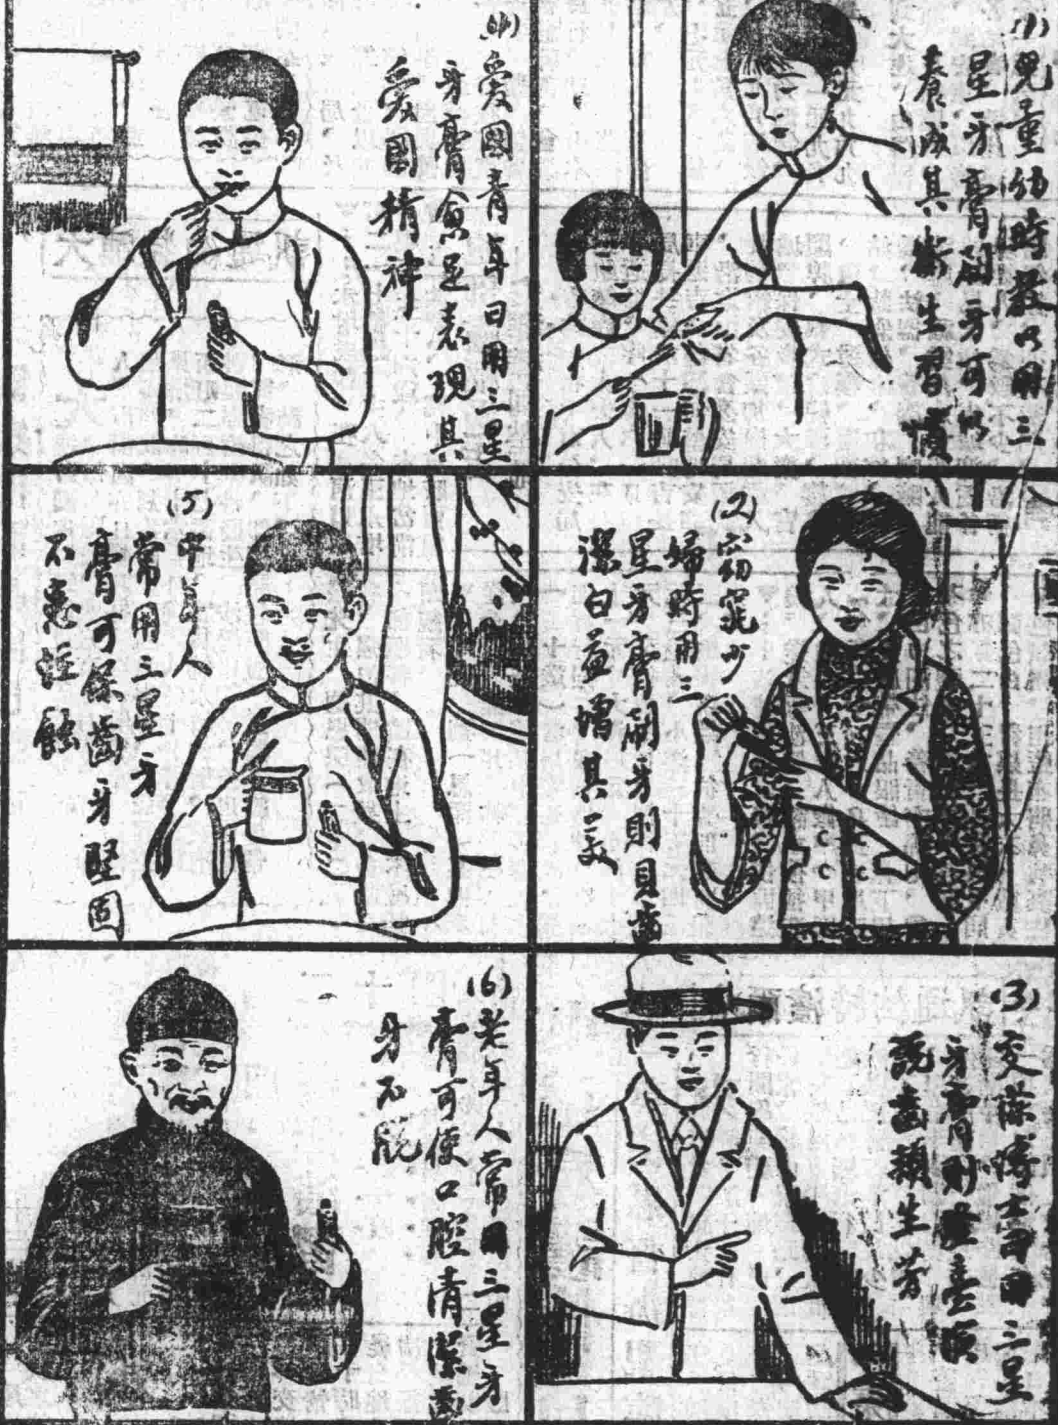 (1)兒童幼時教以用三
星牙膏刷牙可以
養成其衛生習慣
(2)窈窕少
婦時用三
星牙膏刷牙則貝齒
潔白益增其美
(3)交際博士日用三星
牙膏則登臺演
說齒頰生芳
(4)愛國青年日用三星
牙膏愈足表現其
愛國精神
(5)中年人
常用三星牙
膏可保齒牙堅固
不患蛀蝕
(6)老年人常用三星牙
膏可使口腔清潔齒
牙不脫